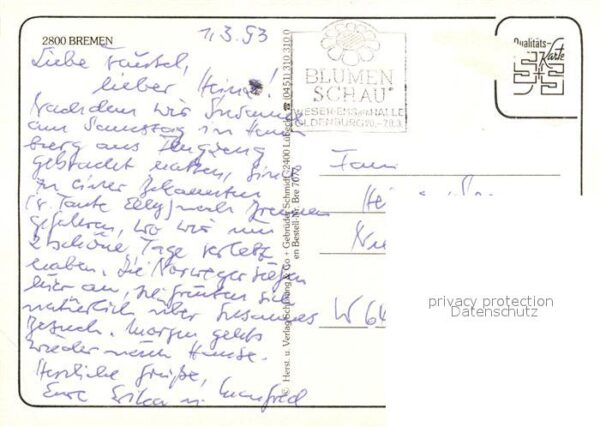 2800 BREMEN
1.3.93
Liebe
lieber Heinz!
Nachdem wir Susanne
am Samstag in Ham
burg ans Flugzeug
gebracht hatten, sind
zu einer Bekannten
(v. Tante Elly) nach Bremen
gefahren, wo wir nun
2 schöne Tage verlebt
haben. Die Norweger riefen
hier an, sie freuten sich
natürlich über Susannes
Besuch. Morgen gehts
wieder nach Hause.
Herzliche Grüße,
Eure Erika u. Manfred
BLUMEN
SCHAU
WESER-EMS-HALLE
OLDENBURG 20.-28.3.
© Herst. u. Verlag Schöning & Co + Gebrüder Schmidt, 2400 Lübeck ☎ (0451) 310 310 0
en Bestell-Nr. Bre 7072
Qualitäts-
Karte
Fam.
W 64
privacy protection
Datenschutz